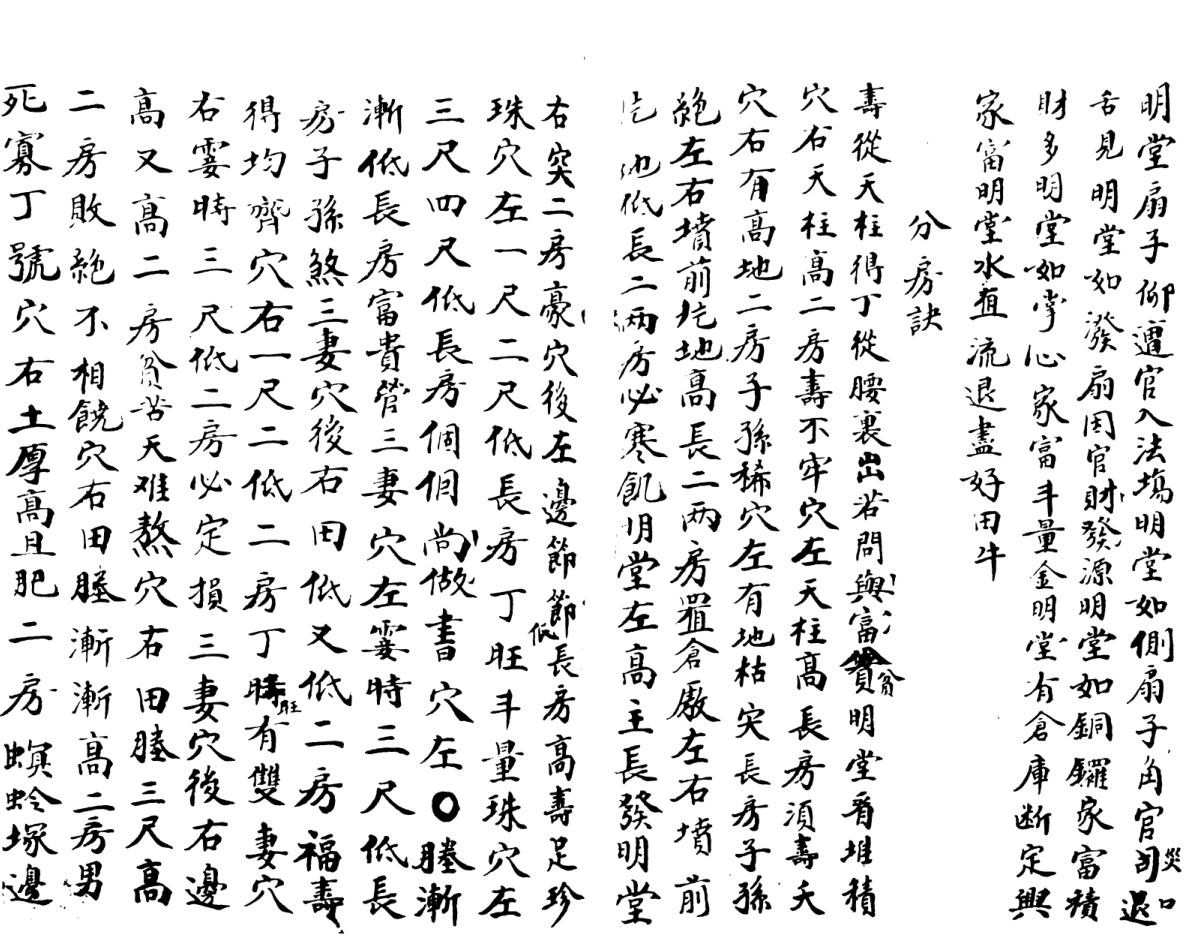 明堂扇子仰遭官入法塲明堂如側扇子角官司災口退
舌見明堂如潑扇因官財發源明堂如銅鑼家富積
財多明堂如掌心家富斗量金明堂有倉庫断定興
家富明堂水直流退盡好田牛
分房訣
壽從天柱得丁從腰裏出若問與富貧明堂看堆積
穴右天柱高二房壽不牢穴左天柱高長房須壽夭
穴右有高地二房子孫稀穴左有地枯突長房子孫
絕左右墳前圪地高長二两房置倉廒左右墳前
圪地低長二两房必寒飢明堂左高主長發明堂
右突二房豪穴後左邊節節低長房高壽足珍
珠穴左一尺二尺低長房丁旺斗量珠穴左
三尺四尺低長房個個尚做書穴左〇塍漸
漸低長房富貴管三妻穴左霎時三尺低長
房子孫煞三妻穴後右田低又低二房福壽
得均齊穴右一尺二低二房丁旺有雙妻穴
右霎時三尺低二房必定損三妻穴後右邊
高又高二房貧苦天难熬穴右田塍三尺高
二房敗絕不相饒穴右田塍漸漸高二房男
死寡丁號穴右土厚高且肥二房螟蛉塚邊